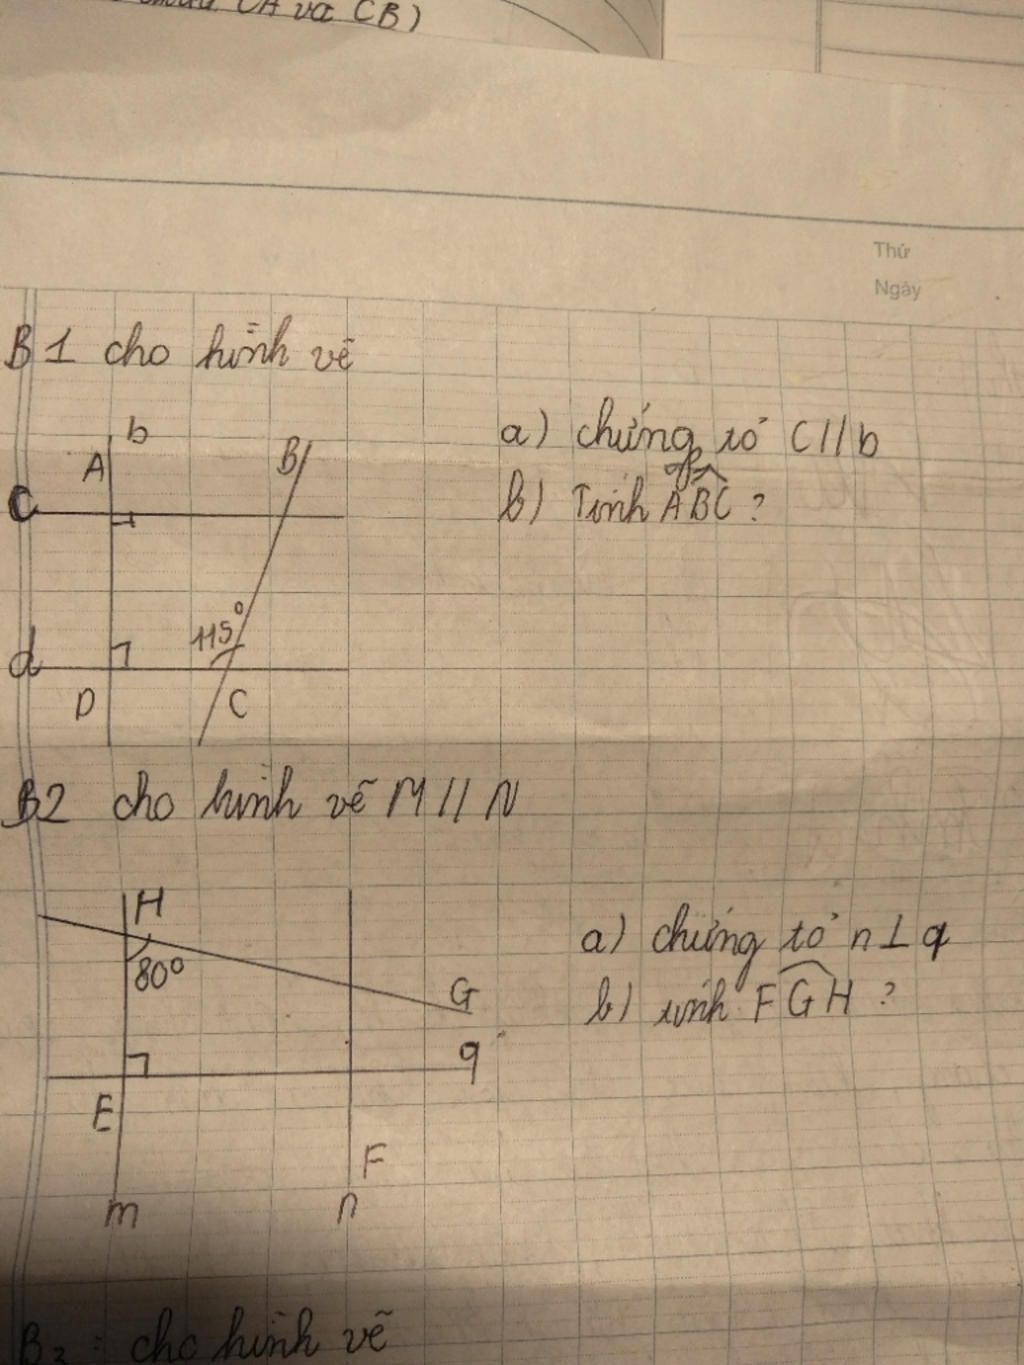 CA và CB)
Thứ
Ngày
B1 cho hình vẽ
a) chứng tỏ C//b
b) Tính ABC ?
b
A
B
C
115°
d
D
C
B2 cho hình vẽ M//N
a) chứng tỏ n⊥q
b) tính FGH ?
H
80°
G
q
E
F
m
n
B3: cho hình vẽ